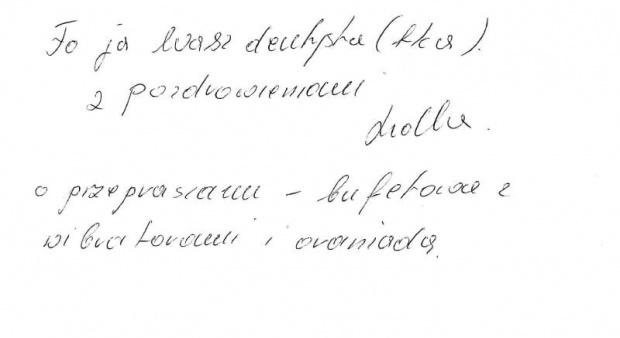 To ja Wasz dentysta (tka).
z pozdrowieniami
o przepraszam – bufetowa z
wibratorami i oraniadą.